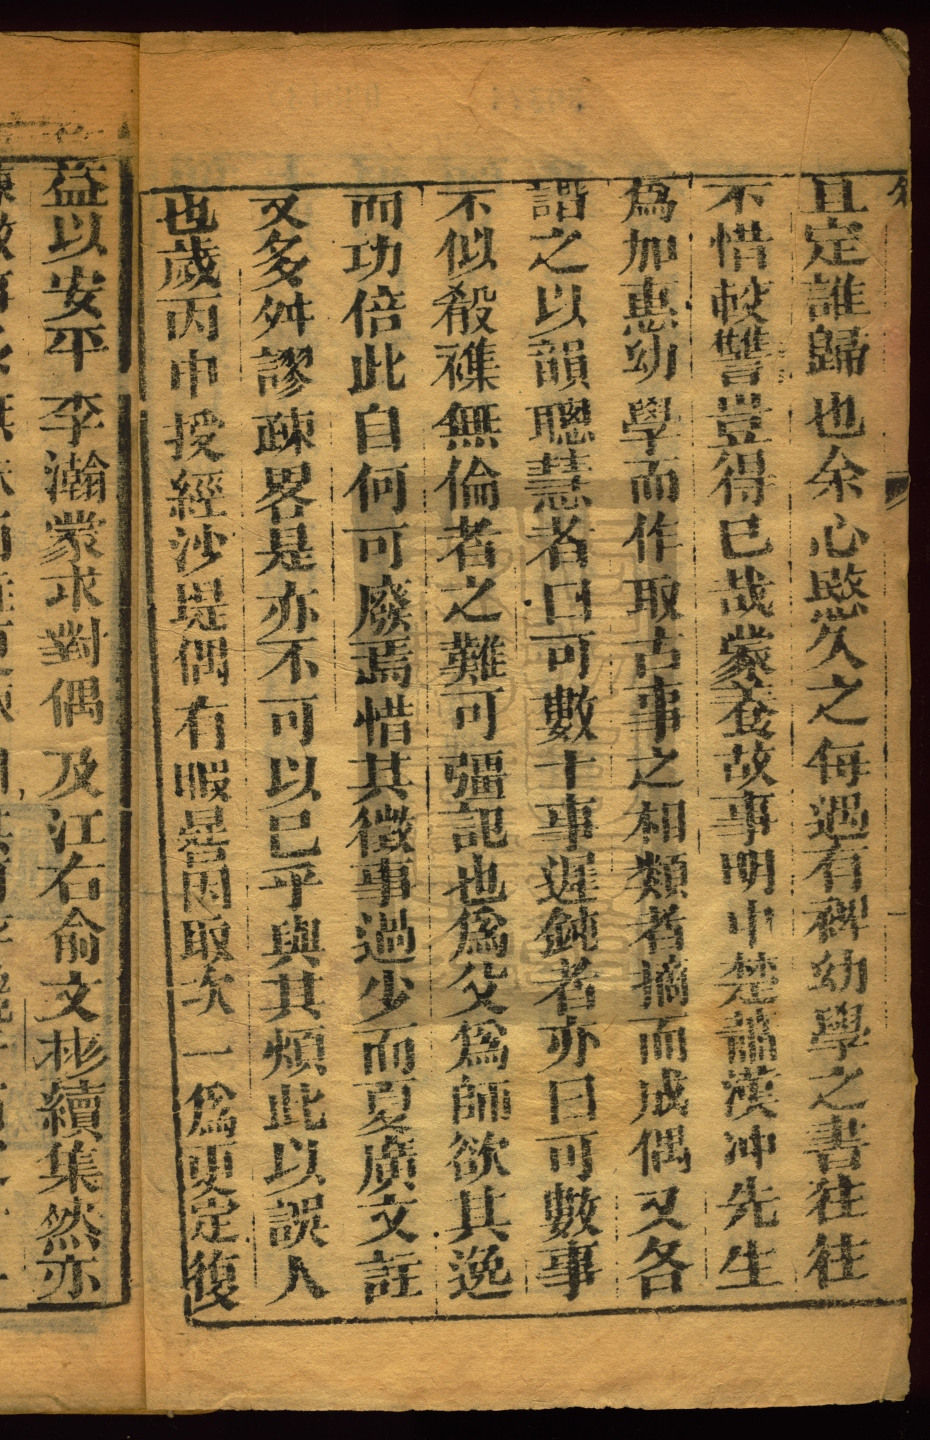 且定誰歸也余心愍久之每遇有稗幼學之書往往
不惜較讐豈得已哉蒙養故事明中楚蕭漢冲先生
爲加惠幼學而作取古事之相類者摘而成偶又各
諧之以韻聰慧者日可數十事遲鈍者亦日可數事
不似殺襍無倫者之難可彊記也爲父爲師欲其逸
而功倍此自何可廢焉惜其徵事過少而夏廣文註
又多舛謬疎畧是亦不可以已乎與其煩此以誤人
也歲丙申授經沙堤偶有暇晷因取次一爲更定復
益以安平李瀚蒙求對偶及江右俞文彬續集然亦